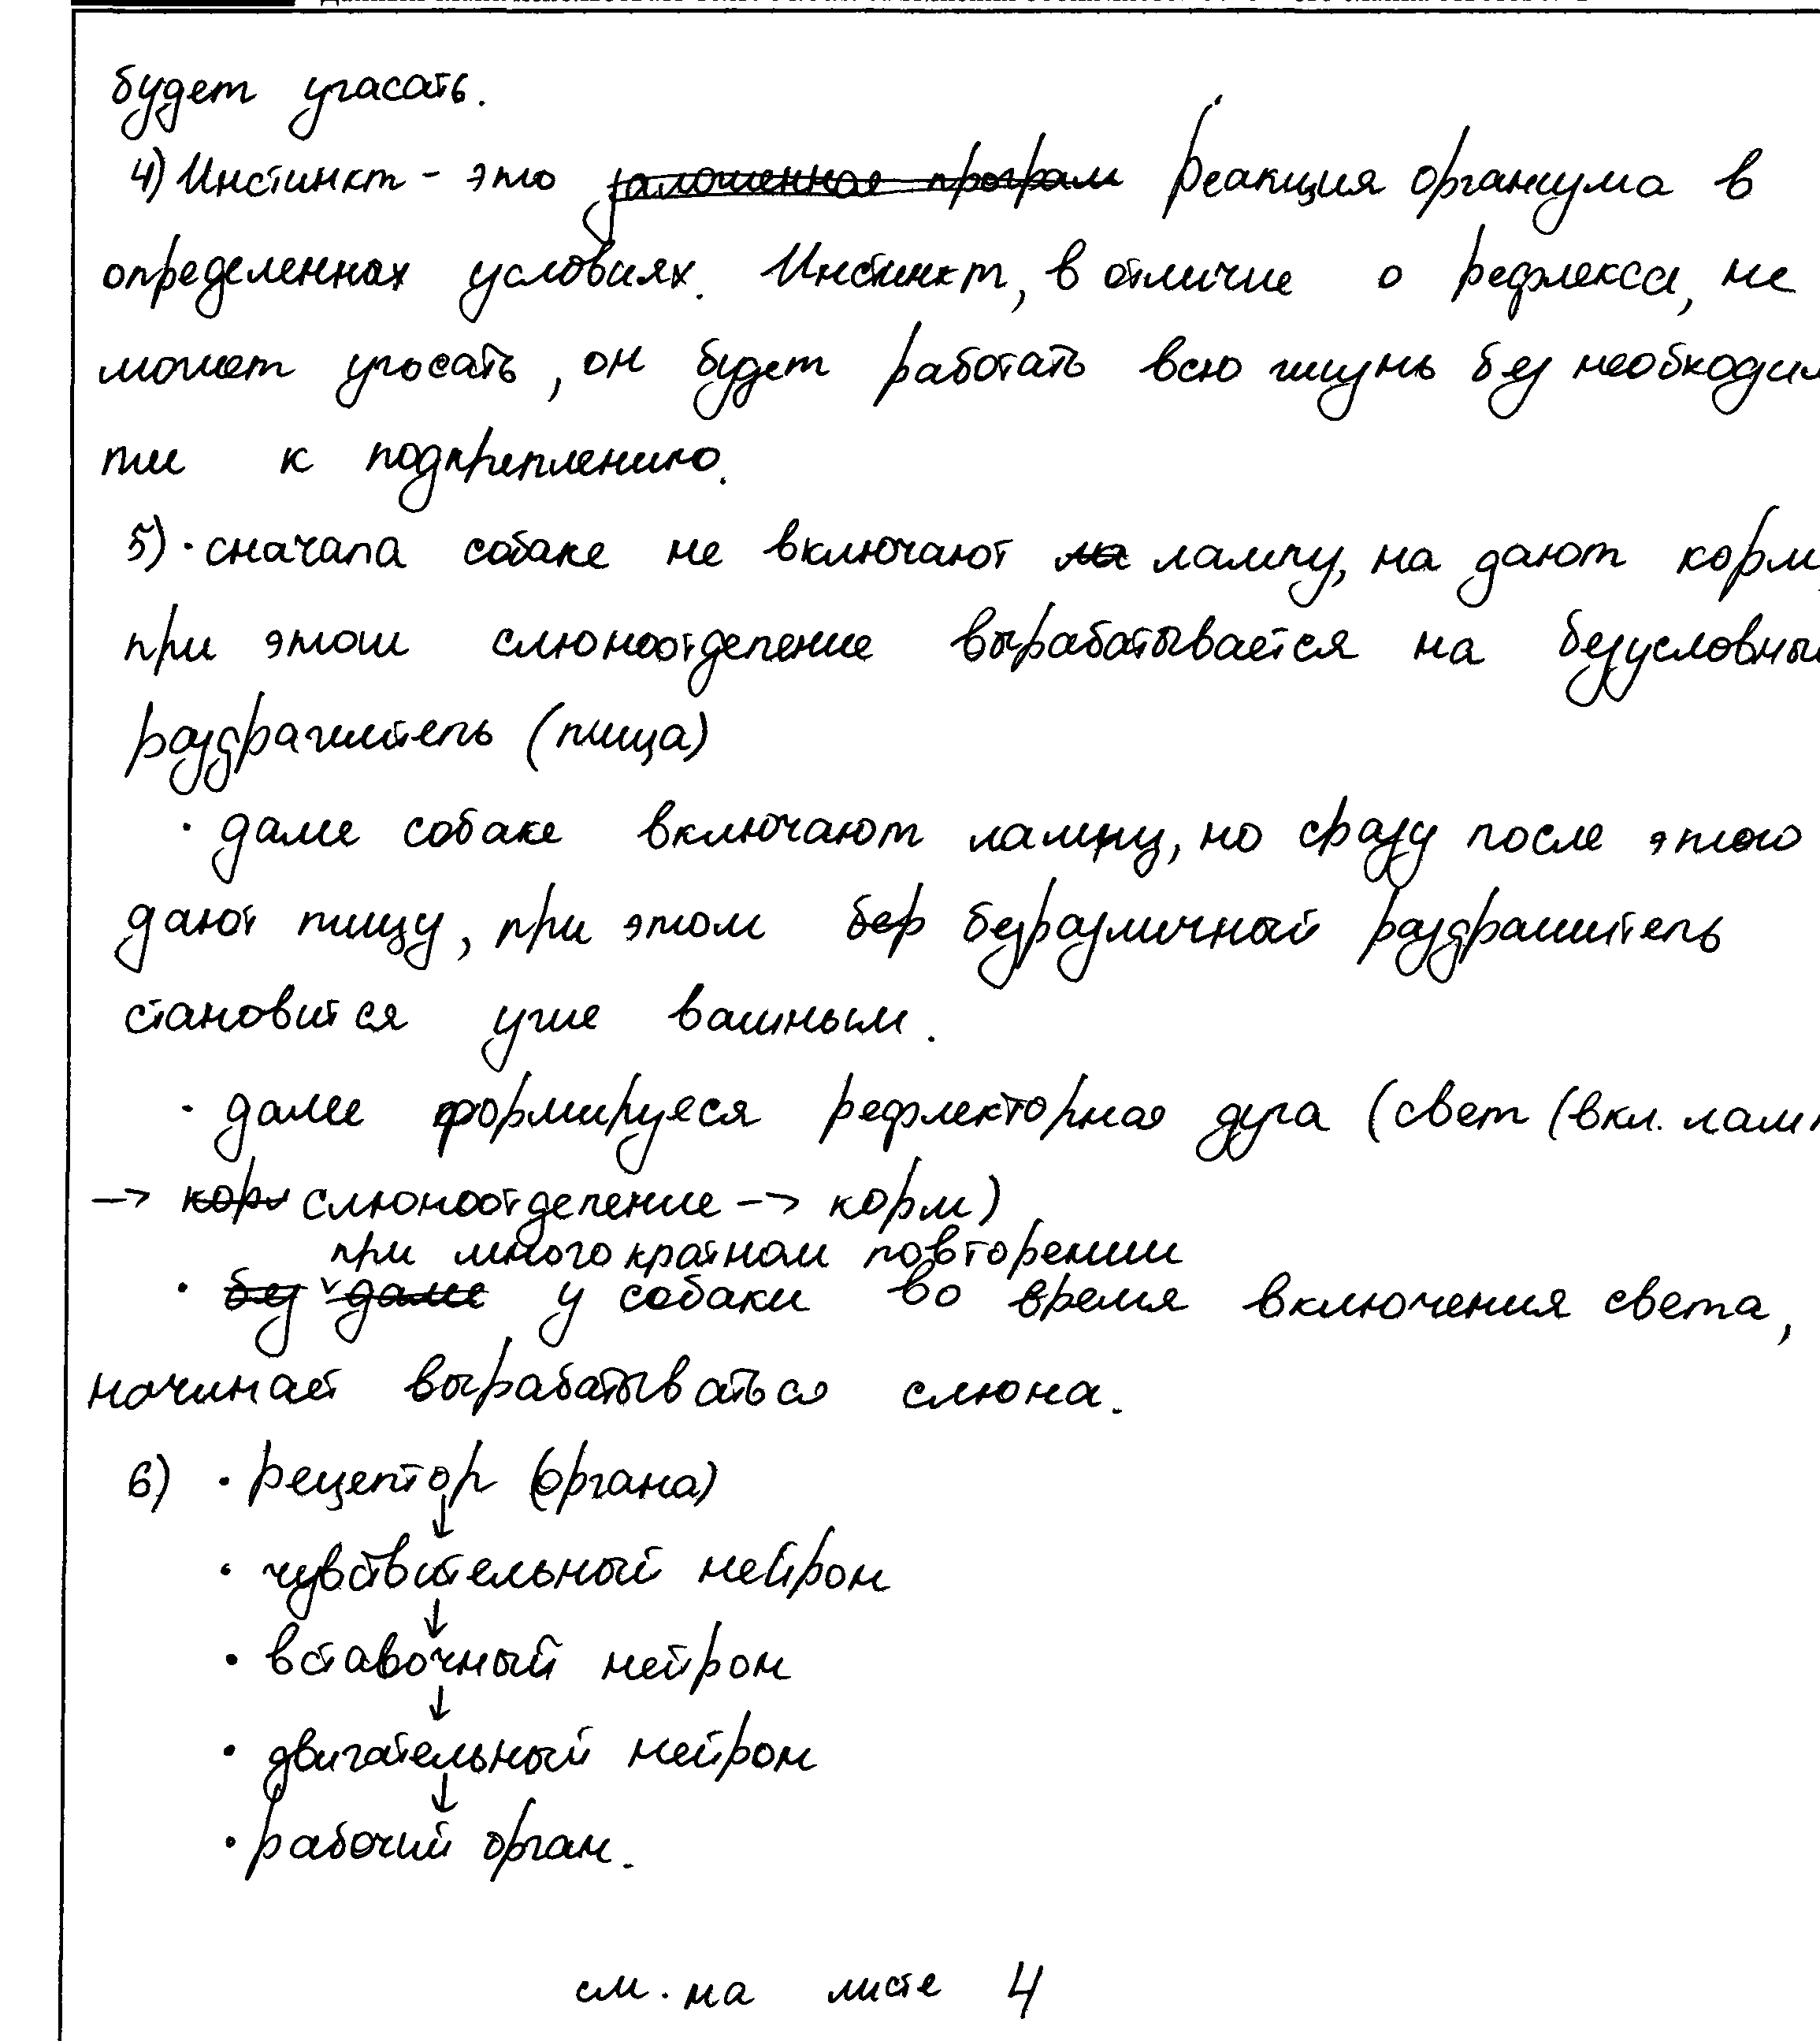 будет угасать.
4) Инстинкт - это ~~заложенная програм~~ реакция организма в
определеннах условиях. Инстинкт, в отличие о рефлекса, не
может угосать, он будет работать всю жизнь без необходим
ти к подкреплению.
5) · сначала собаке не включают ~~ла~~ лампу, на дают корм,
при этом слюноотделение вырабатывается на безусловный
раздражитель (пища)
· далее собаке включают лампу, но сразу после этого
дают пищу, при этом ~~бер~~ безразличный раздражитель
становится уже важным.
· далее формируеся рефлекторная дуга (свет (вкл. ламп
-> ~~корм~~ слюноотделение -> корм)
при многократном повторении
· ~~без~~ ~~далее~~ у собаки во время включения света,
начинает вырабатываться слюна.
6) · рецептор (органа)
↓
· чувствительный нейрон
↓
· вставочный нейрон
↓
· двигательный нейрон
↓
· рабочий орган.
см. на листе 4